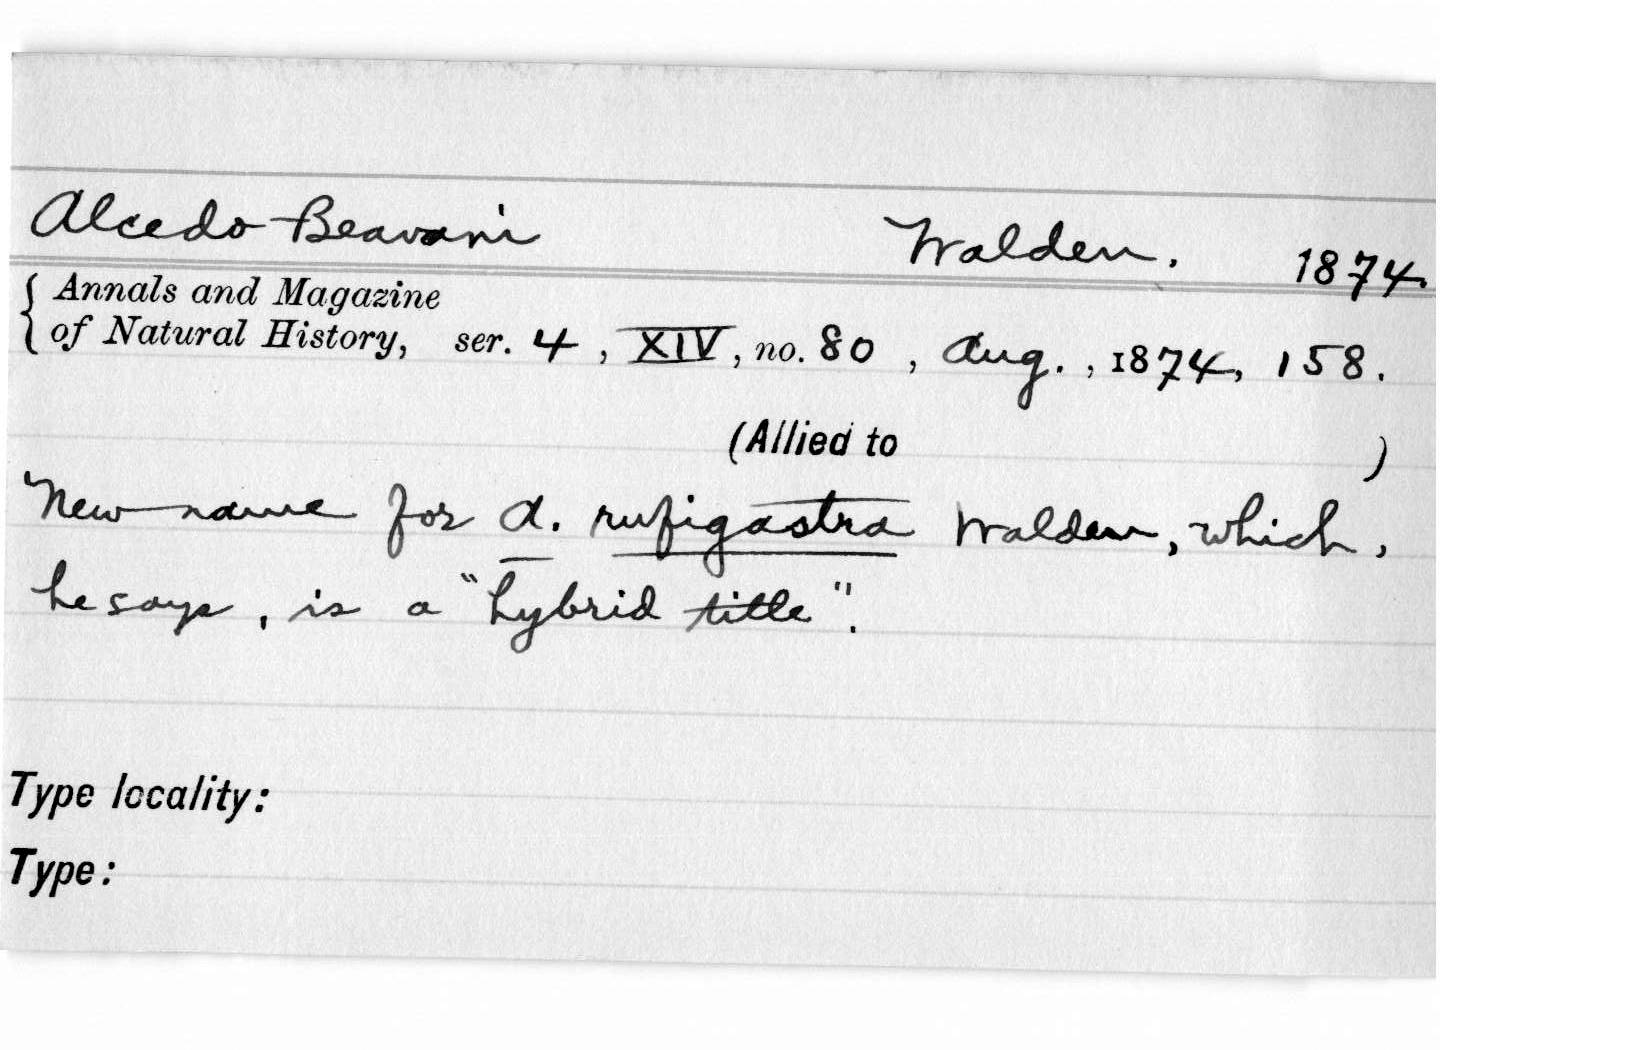 Alcedo Beavani Walden. 1874.
{ Annals and Magazine
of Natural History, ser. 4, XIV, no. 80, Aug., 1874, 158.
(Allied to )
New name for A. rufigastra Walden, which,
he says, is a "hybrid title".
Type locality:
Type: